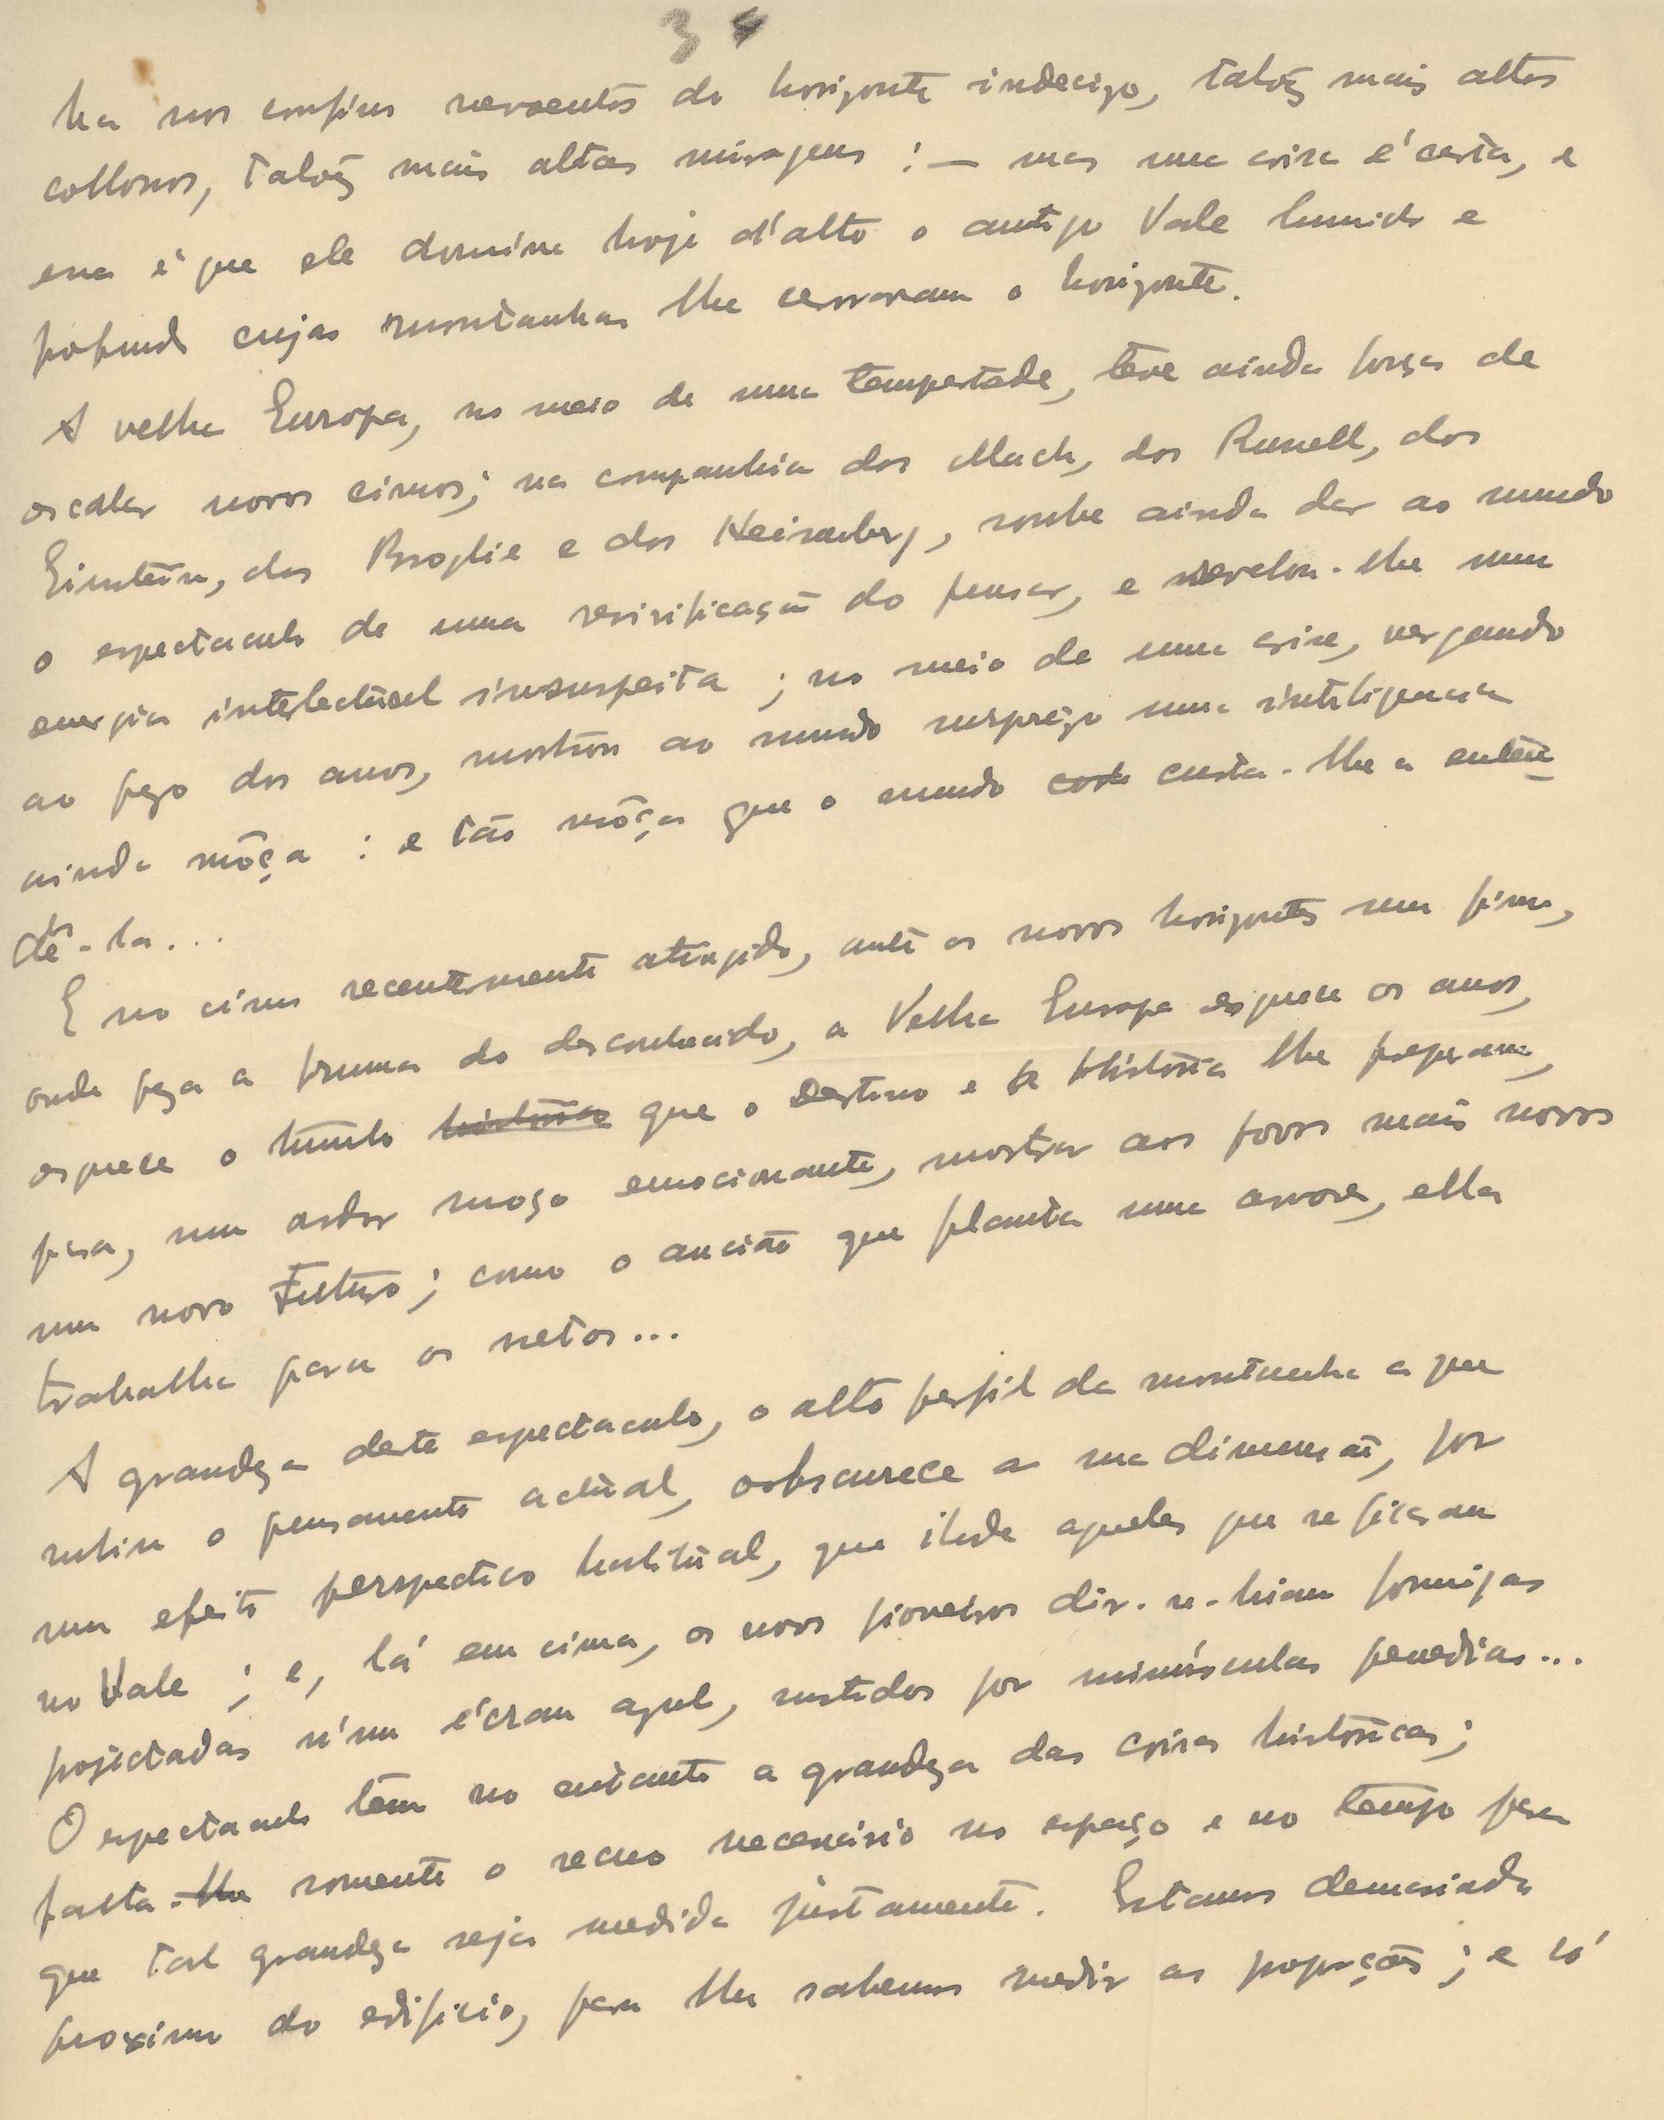 3
ha nos confins nevoentos do horizonte indeciso, talvez mais altos
collossos, talvez mais altas miragens : — mas uma coisa é certa, e
essa é que ele domina hoje d'alto o antigo Vale humido e
profundo cujas montanhas lhe cerravam o horizonte.
A velha Europa, no meio de uma tempestade, teve ainda força de
escalar novos cimos; na companhia dos Mach, dos Russell, dos
Einstein, dos Broglie e dos Heisenberg, soube ainda dar ao mundo
o espectaculo de uma revivificação do pensar, e revelou-lhe uma
energia intelectual insuspeita ; no meio de uma crise, vergando
ao pezo dos anos, mostrou ao mundo surprezo uma inteligencia
ainda môça : e tão môça que o mundo custa-lhe a enten
dê-la...
E no cimo recentemente atingido, ante os novos horizontes sem fim,
onde peza a bruma do desconhecido, a Velha Europa esquece os anos,
esquece o tumulo historico que o Destino e a Historia lhe preparam,
para, num ardor moço emocionante, mostrar aos povos mais novos
um novo Futuro; como o ancião que planta uma arvore, ella
trabalha para os netos...
A grandeza deste espectaculo, o alto perfil da montanha a que
subiu o pensamento actual, obscurece a sua dimensão, por
um efeito perspectico habitual, que ilude aqueles que se ficaram
no Vale ; e, lá em cima, os novos pioneiros dir-se-hiam formigas
projectadas n'um écran azul, sustidos por minúsculas penedias...
O espectaculo tem no entanto a grandeza das coisas históricas;
falta-lhe somente o recuo necessário no espaço e no tempo para
que tal grandeza seja medida justamente. Estamos demasiado
proximo do edificio, para lhe sabermos medir as proporções ; e só